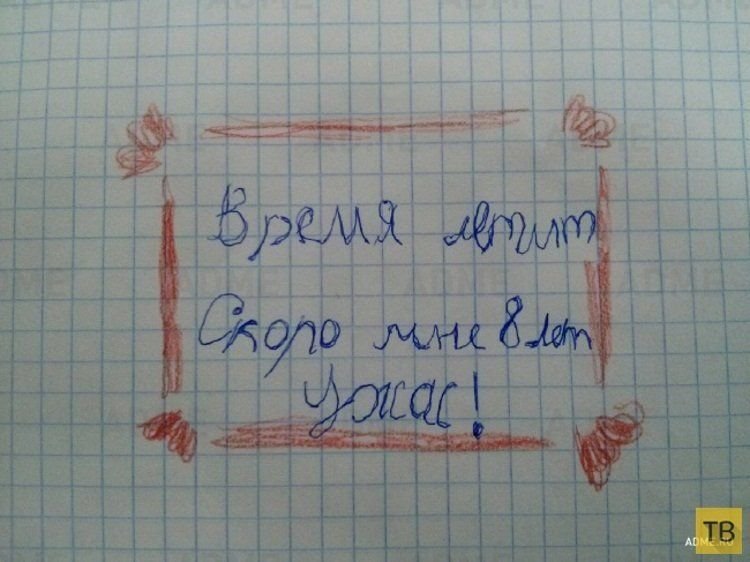 Время летит
Скоро мне 8 лет
Ужас!
ТВ
ADME.RU